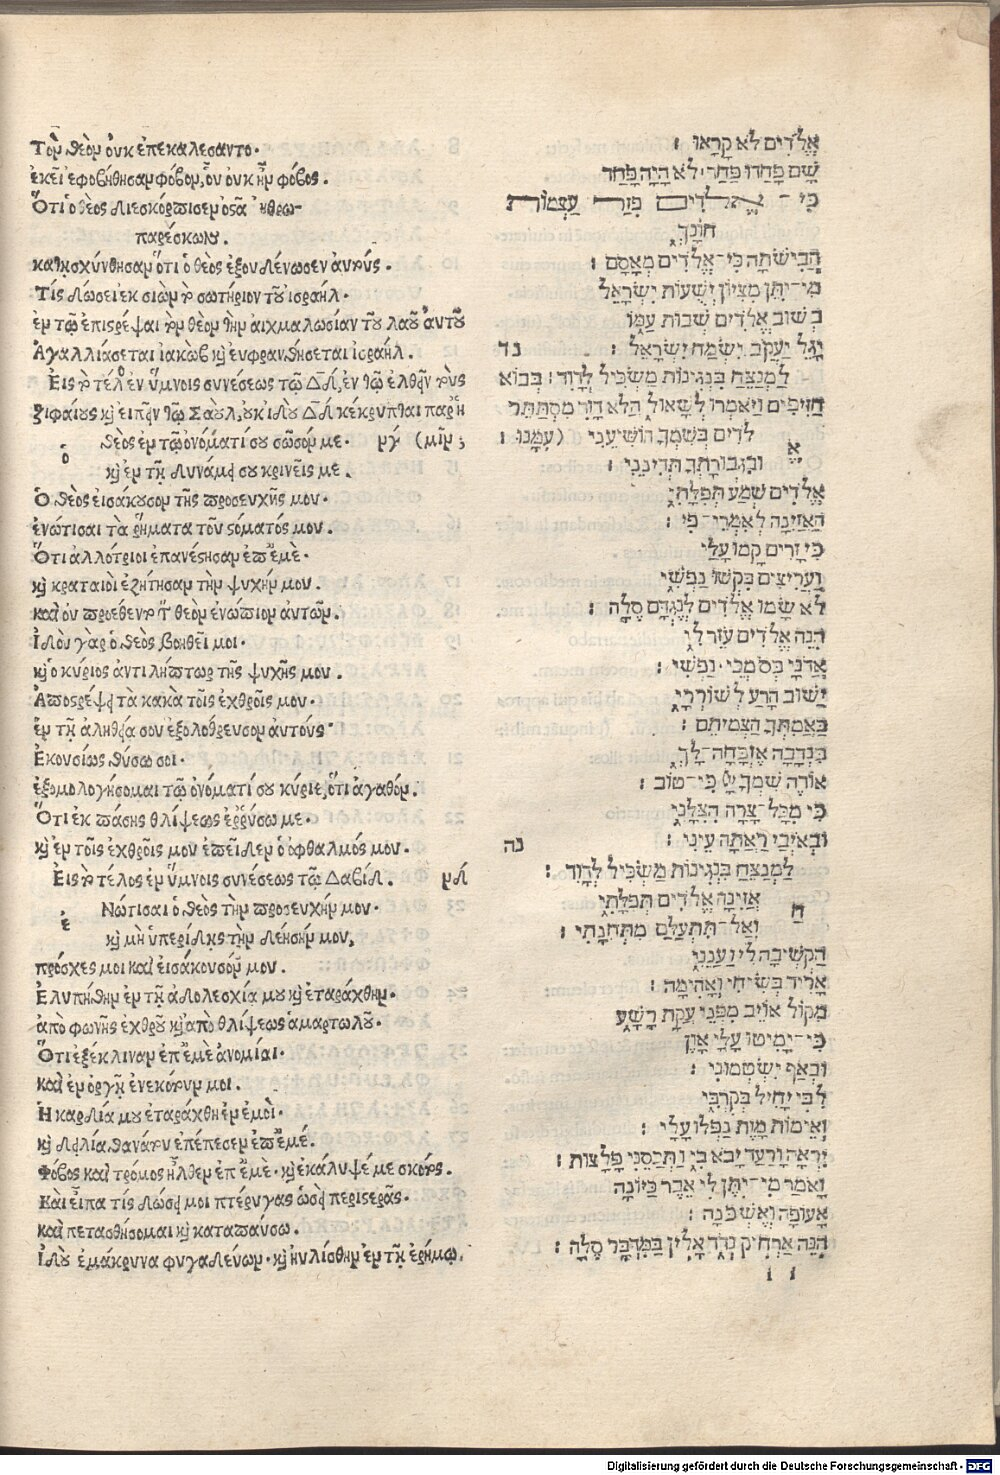 Τὸν θεὸν οὐκ ἐπεκαλέσαντο.
ἐκεῖ ἐφοβήθησαν φόβον, οὗ οὐκ ἦν φόβος.
Ὅτι ὁ θεὸς διεσκόρπισεν ὀστᾶ ἀνθρω-
παρέσκων.
κατῃσχύνθησαν ὅτι ὁ θεὸς ἐξουδένωσεν αὐτούς.
Τίς δώσει ἐκ σιὼν τὸ σωτήριον τοῦ ἰσραήλ.
ἐν τῷ ἐπιστρέψαι τὸν θεὸν τὴν αἰχμαλωσίαν τοῦ λαοῦ αὐτοῦ
Ἀγαλλιάσεται ἰακὼβ καὶ εὐφρανθήσεται ἰσραήλ.
Εἰς τὸ τέλος ἐν ὕμνοις συνέσεως τῷ Δαδ, ἐν τῷ ἐλθεῖν τοὺς
ζιφαίους καὶ εἰπεῖν τῷ Σαοὺλ, οὐκ ἰδοὺ Δαδ κέκρυπται παρ' ἡ
ὁ θεὸς ἐν τῷ ὀνόματί σου σῶσόν με. ργ (μῖν;
καὶ ἐν τῇ δυνάμει σου κρινεῖς με.
Ὁ θεὸς εἰσάκουσον τῆς προσευχῆς μου.
ἐνώτισαι τὰ ῥήματα τοῦ στόματός μου.
Ὅτι ἀλλότριοι ἐπανέστησαν ἐπ' ἐμὲ.
καὶ κραταιοὶ ἐζήτησαν τὴν ψυχήν μου.
καὶ οὐ προέθεντο τὸν θεὸν ἐνώπιον αὐτῶν.
Ἰδοὺ γὰρ ὁ θεὸς βοηθεῖ μοι.
καὶ ὁ κύριος ἀντιλήπτωρ τῆς ψυχῆς μου.
Ἀποστρέψει τὰ κακὰ τοῖς ἐχθροῖς μου.
ἐν τῇ ἀληθείᾳ σου ἐξολόθρευσον αὐτούς.
Ἑκουσίως θύσω σοι.
ἐξομολογήσομαι τῷ ὀνόματί σου κύριε, ὅτι ἀγαθόν.
Ὅτι ἐκ πάσης θλίψεως ἐρρύσω με.
καὶ ἐν τοῖς ἐχθροῖς μου ἐπεῖδεν ὁ ὀφθαλμός μου.
Εἰς τὸ τέλος ἐν ὕμνοις συνέσεως τῷ Δαβίδ. ρδ
ἐ Νώτισαι ὁ θεὸς τὴν προσευχήν μου.
καὶ μὴ ὑπερίδῃς τὴν δέησίν μου,
πρόσχες μοι καὶ εἰσάκουσόν μου.
Ἐλυπήθην ἐν τῇ ἀδολεσχίᾳ μου καὶ ἐταράχθην.
ἀπὸ φωνῆς ἐχθροῦ καὶ ἀπὸ θλίψεως ἁμαρτωλοῦ.
Ὅτι ἐξέκλιναν ἐπ' ἐμὲ ἀνομίαι.
καὶ ἐν ὀργῇ ἐνεκότουν μοι.
Ἡ καρδία μου ἐταράχθη ἐν ἐμοί.
καὶ δειλία θανάτου ἐπέπεσεν ἐπ' ἐμέ.
Φόβος καὶ τρόμος ἦλθεν ἐπ' ἐμὲ. καὶ ἐκάλυψέ με σκότος.
Καὶ εἶπα τίς δώσει μοι πτέρυγας ὡσεὶ περιστερᾶς.
καὶ πετασθήσομαι καὶ καταπαύσω.
Ἰδοὺ ἐμάκρυνα φυγαδεύων. καὶ ηὐλίσθην ἐν τῇ ἐρήμῳ.
אֱלֹדִים לֹא קָרָאוּ :
שָׁם פָּחֲדוּ פַחַד לֹא הָיָה פָּחַד
כִּי־אֱלֹדִים פִּזַּר עַצְמוֹת
חוֹנָךְ
הֱבִישֹׁתָה כִּי־אֱלֹדִים מְאָסָם :
מִי־יִתֵּן מִצִּיּוֹן יְשֻׁעוֹת יִשְׂרָאֵל
בְּשׁוּב אֱלֹדִים שְׁבוּת עַמּוֹ
יָגֵל יַעֲקֹב יִשְׂמַח יִשְׂרָאֵל : נד
לַמְנַצֵּחַ בִּנְגִינוֹת מַשְׂכִּיל לְדָוִד : בְּבוֹא
הַזִּיפִים וַיֹּאמְרוּ לְשָׁאוּל הֲלֹא דָוִד מִסְתַּתֵּר
אֱ לֹדִים בְּשִׁמְךָ הוֹשִׁיעֵנִי (עִמָּנוּ :
וּבִגְבוּרָתְךָ תְדִינֵנִי :
אֱלֹדִים שְׁמַע תְּפִלָּתִי
הַאֲזִינָה לְאִמְרֵי־פִי :
כִּי זָרִים קָמוּ עָלַי
וְעָרִיצִים בִּקְשׁוּ נַפְשִׁי
לֹא שָׂמוּ אֱלֹדִים לְנֶגְדָּם סֶלָה :
הִנֵּה אֱלֹדִים עֹזֵר לִי
אֲדֹנָי בְּסֹמְכֵי נַפְשִׁי :
יָשׁוּב הָרַע לְשׁוֹרְרָי
בַּאֲמִתְּךָ הַצְמִיתֵם :
בִּנְדָבָה אֶזְבְּחָה־לָּךְ
אוֹדֶה שִׁמְךָ כִּי־טוֹב :
כִּי מִכָּל־צָרָה הִצִּילָנִי
וּבְאֹיְבַי רָאֲתָה עֵינִי : נה
לַמְנַצֵּחַ בִּנְגִינוֹת מַשְׂכִּיל לְדָוִד :
הַ אֲזִינָה אֱלֹדִים תְּפִלָּתִי
וְאַל־תִּתְעַלַּם מִתְּחִנָּתִי :
הַקְשִׁיבָה לִּי וַעֲנֵנִי
אָרִיד בְּשִׂיחִי וְאָהִימָה :
מִקּוֹל אוֹיֵב מִפְּנֵי עָקַת רָשָׁע
כִּי־יָמִיטוּ עָלַי אָוֶן
וּבְאַף יִשְׂטְמוּנִי :
לִבִּי יָחִיל בְּקִרְבִּי
וְאֵימוֹת מָוֶת נָפְלוּ עָלָי :
יִרְאָה וָרַעַד יָבֹא בִי וַתְּכַסֵּנִי פַּלָּצוּת :
וָאֹמַר מִי־יִתֶּן לִי אֵבֶר כַּיּוֹנָה
אָעוּפָה וְאֶשְׁכֹּנָה :
הִנֵּה אַרְחִיק נְדֹד אָלִין בַּמִּדְבָּר סֶלָה :
Digitalisierung gefördert durch die Deutsche Forschungsgemeinschaft - DFG